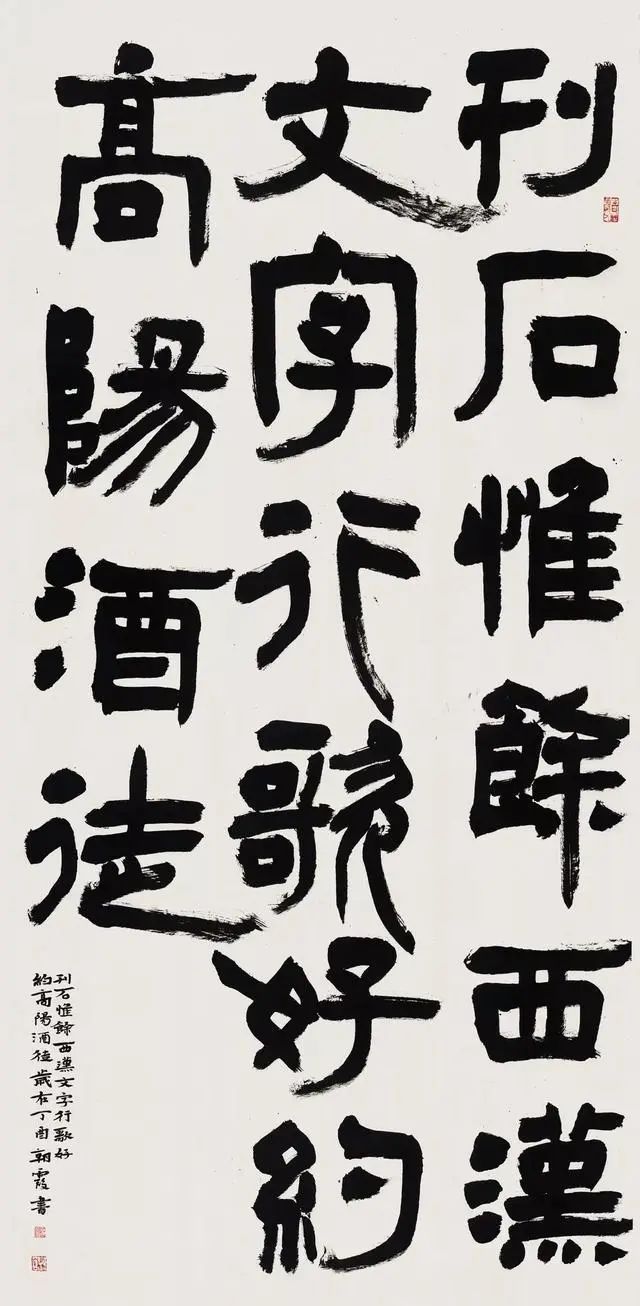 刊石惟餘西漢
文字行歌好約
高陽酒徒
刊石惟餘西漢文字行歌好
約高陽酒徒歲在丁酉朝霞書